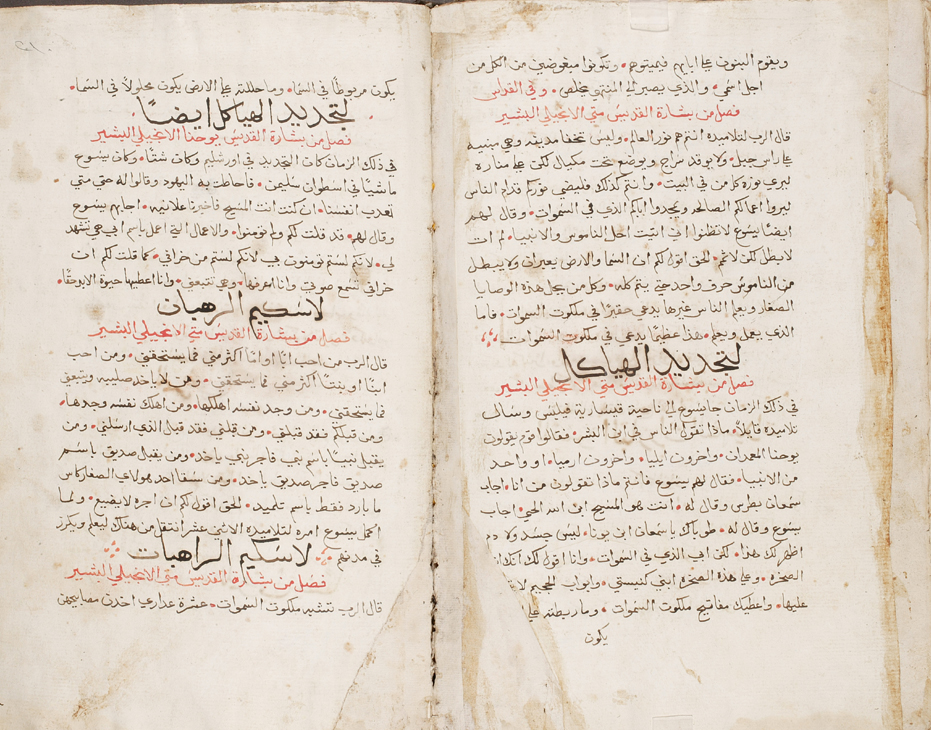 ويقوم البنون على ابايهم فيميتوهم • وتكونوا مبغوضين من الكل من
اجل اسمي • والذي يصبر الى المنتهى يخلص • وفي القداس
فصل من بشارة القديس متى الانجيلي البشير
قال الرب لتلاميذه انتم هم نور العالم • وليس تخفا مدينه وهي مبنيه
على راس جبل • ولا يوقد سراج ويوضع تحت مكيال لكن على مناره
ليرى نوره كل من في البيت • وانتم كذلك فليضي نوركم قدام الناس
ليروا اعمالكم الصالحه ويمجدوا اباكم الذي في السموات • وقال لهم
ايضًا يسوع لا تظنوا اني اتيت احل الناموس والانبيا • لم ات
لابطل لكن لاتم • الحق اقول لكم ان السما والارض يعبران ولا يبطل
من الناموس حرف واحد حتى يتم كله • وكل من يحل هذه الوصايا
الصغار ويعلم الناس غيرها يدعى حقيرًا في ملكوت السموات • فاما
الذي يعمل ويعلم • هذا عظيمًا يدعى في ملكوت السموات
لتجديد الهياكل
فصل من بشارة القديس متى الانجيلي البشير
في ذلك الزمان جا يسوع الى ناحية قيسارية فيلبس وسال
تلاميذه قايلاً • ماذا تقول الناس في ابن البشر • فقالوا قوم يقولون
يوحنا المعمدان • واخرون ايليا • واخرون ارميا • او واحد
من الانبيا • فقال لهم يسوع فانتم ماذا تقولون من انا • اجاب
سمعان بطرس وقال له • انت هو المسيح ابن الله الحي • اجاب
يسوع وقال له • طوباك يا سمعان ابن يونا • ليس جسد ولا دم
اظهر لك هذا • لكن ابي الذي في السموات • وانا اقول لك انك انت
الصخره • وعلى هذه الصخره ابني كنيستي • وابواب الجحيم لا
عليها • واعطيك مفاتيح ملكوت السموات • وما ربطته على
يكون
يكون مربوطًا في السما • وما حللته على الارض يكون محلولاً في السما •
لتجديد الهياكل ايضًا
فصل من بشارة القديس يوحنا الانجيلي البشير
في ذلك الزمان كان التجديد في اورشليم وكان شتا • وكان يسوع
ماشيًا في اسطوان سليمن • فاحاطت به اليهود وقالوا له حتى متى
تعذب انفسنا • ان كنت انت المسيح فاخبرنا علانيه • اجابهم يسوع
وقال لهم • قد قلت لكم ولم تؤمنوا • والاعمال التي اعمل باسم ابي هي تشهد
لي • لانكم لستم تومنون بي لانكم لستم من خرافي • كما قلت لكم ان
خرافي تسمع صوتي وانا اعرفها • وهي تتبعني • وانا اعطيها حيوة الابد حقًا •
لاسكيم الرهبان
فصل من بشارة القديس متى الانجيلي البشير
قال الرب من احب ابًا او امًا اكثر مني فما يستحقني • ومن احب
ابنًا او بنتًا اكثر مني فما يستحقني • ومن لا ياخذ صليبه ويتبعني
فما يستحقني • ومن وجد نفسه اهلكها • ومن اهلك نفسه وجدها •
ومن قبلكم فقد قبلني • ومن قبلني فقد قبل الذي ارسلني • ومن
يقبل نبيًا باسم نبي فاجر نبي ياخذ • ومن يقبل صديق باسم
صديق فاجر صديق ياخذ • ومن سقا احد هولاي الصغار كاس
ما بارد فقط باسم تلميذ • الحق اقول لكم ان اجره لا يضيع • ولما
اكمل يسوع امره لتلاميذه الاثنى عشر انتقل من هناك ليعلم ويكرز
في مدنهم لاسكيم الراهبات
فصل من بشارة القديس متى الانجيلي البشير
قال الرب تتشبه ملكوت السموات • عشرة عذارى اخذن مصابيحهن